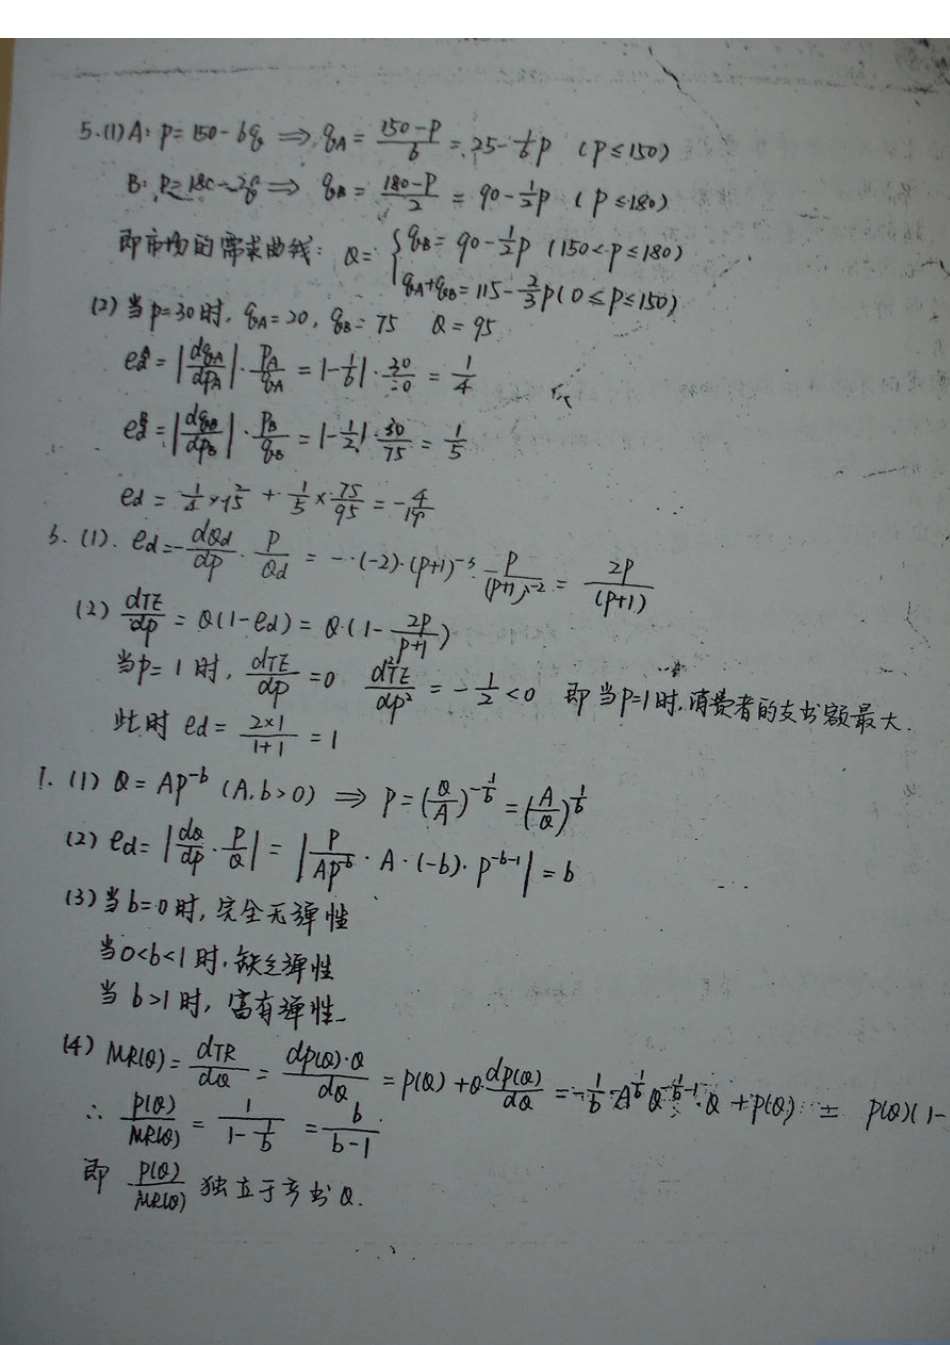 5.(1) A: P=150-6q ⟹ qA = (150-P)/6 = 25-1/6P (P≤150)
B: P=180-2q ⟹ qB = (180-P)/2 = 90-1/2P (P≤180)
即市场的需求曲线: Q= { qB=90-1/2P (150<P≤180)
qA+qB=115-2/3P (0≤P≤150)
(2) 当P=30时, qA=20, qB=75 Q=95
edA = |dqA/dPA|·PA/qA = |-1/6|· = 1/4
edB = |dqB/dPB|·PB/qB = |-1/2|·30/75 = 1/5
ed = + 1/5×75/95 =
(1). ed=-dQd/dP·P/Qd = -·(-2)·(P+1)^-3·P/(P+1)^-2 = 2P/(P+1)
(2) dTE/dP = Q(1-ed) = Q·(1-2P/(P+1))
当P=1时, dTE/dP=0 d²TE/dP² = -1/2<0 即当P=1时,消费者的支出额最大.
此时 ed = (2×1)/(1+1) = 1
(1) Q=AP^-b (A,b>0) ⟹ P=(Q/A)^-1/b=(A/Q)^1/b
(2) ed=|dQ/dP·P/Q| = |P/AP^-b·A·(-b)·P^-b-1|=b
(3) 当b=0时,完全无弹性
当0<b<1时,缺乏弹性
当b>1时,富有弹性
(4) MR(Q)=dTR/dQ = dP(Q)·Q/dQ = P(Q)+Q·dP(Q)/dQ = -1/b·A^1/b Q^-1/b-1·Q+P(Q) = P(Q)(1-
∴ P(Q)/MR(Q) = 1/(1-1/b) = b/(b-1)
即 P(Q)/MR(Q) 独立于产出Q.